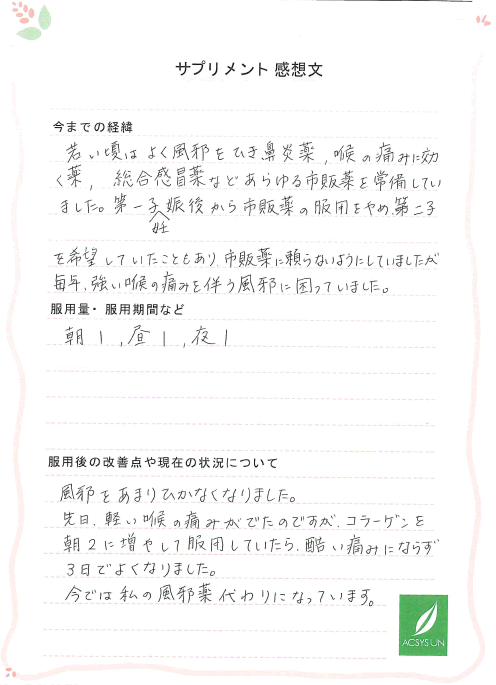 サプリメント 感想文
今までの経緯
若い頃はよく風邪をひき鼻炎薬，喉の痛みに効
く薬，総合感冒薬などあらゆる市販薬を常備してい
ました。第一子妊娠後から市販薬の服用をやめ、第二子
を希望していたこともあり、市販薬に頼らないようにしていましたが
毎年、強い喉の痛みを伴う風邪に困っていました。
服用量・服用期間など
朝１，昼１，夜１
服用後の改善点や現在の状況について
風邪をあまりひかなくなりました。
先日、軽い喉の痛みがでたのですが、コラーゲンを
朝２に増やして服用していたら、酷い痛みにならず
３日でよくなりました。
今では私の風邪薬代わりになっています。
ACSYSUN